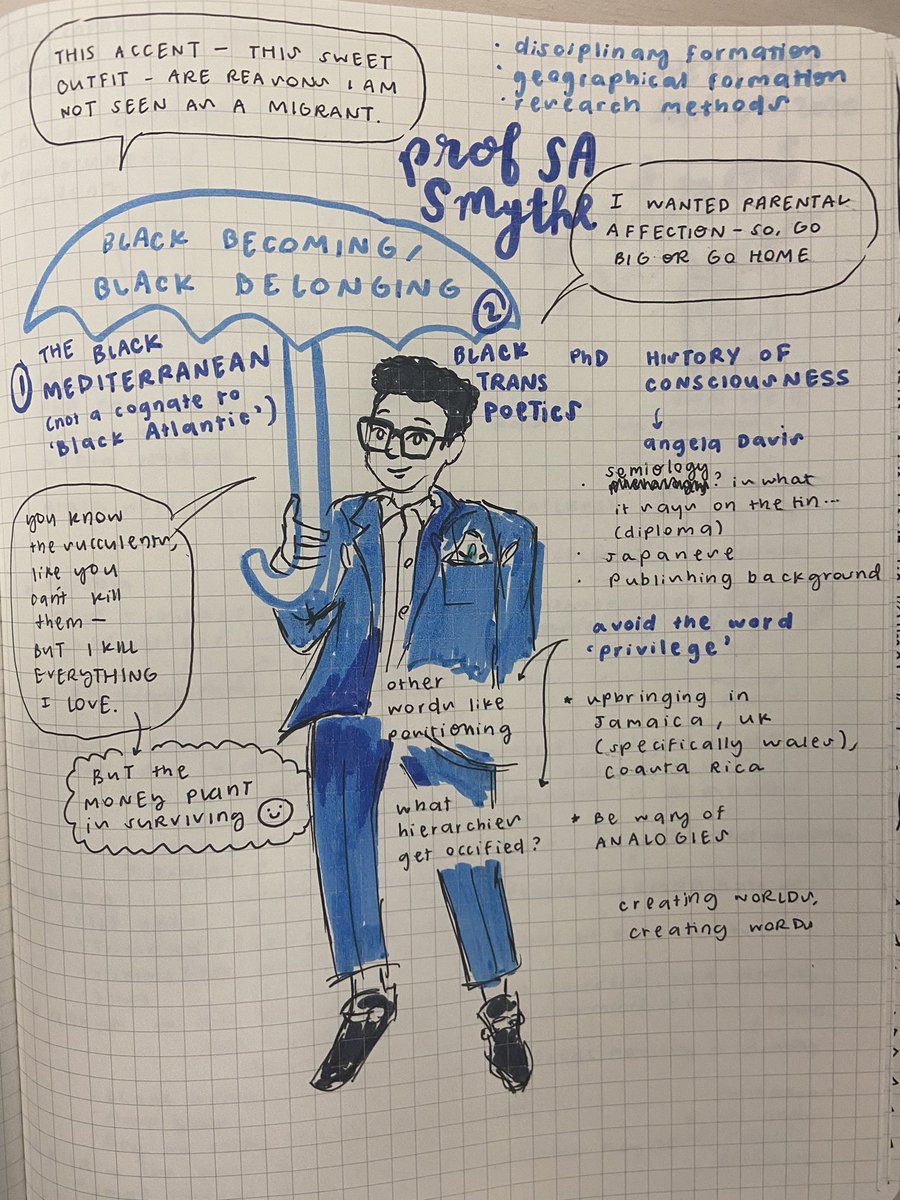 THIS ACCENT – THIS SWEET
OUTFIT – ARE REASONS I AM
NOT SEEN AS A MIGRANT.
· disciplinary formation
· geographical formation
· research methods
prof SA
Smythe
I WANTED PARENTAL
AFFECTION – SO, GO
BIG OR GO HOME
BLACK BECOMING,
BLACK BELONGING
① THE BLACK
MEDITERRANEAN
(not a cognate to
'Black Atlantic')
②
BLACK
TRANS
POETICS
PhD HISTORY OF
CONSCIOUSNESS
↓
angela Davis
· semiology ? is what
it says on the tin...
(diploma)
· Japanese
· Publishing background
you know
the succulents,
like you
can't kill
them –
BUT I KILL
EVERYTHING
I LOVE.
BUT the
MONEY PLANT
is surviving
avoid the word
'privilege'
other
words like
positioning
what
hierarchies
get occified?
* upbringing in
Jamaica, UK
(specifically wales),
Coasta Rica
* Be wary of
ANALOGIES
creating WORLDS,
creating WORDS